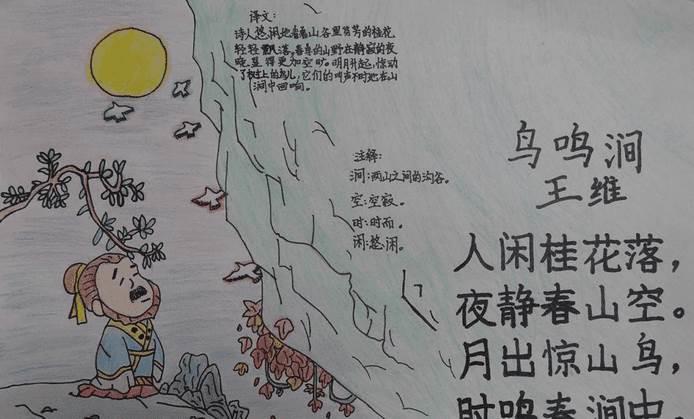 译文:
诗人悠闲地看着山谷里芬芳的桂花
轻轻飘落,春季的山野在静寂的夜
晚显得更加空旷。明月升起,惊动
了树上的鸟儿,它们的叫声不时地在山
涧中回响。
注释:
涧:两山之间的沟谷。
空:空寂。
时:时而。
闲:悠闲。
鸟鸣涧
王维
人闲桂花落,
夜静春山空。
月出惊山鸟,
时鸣春涧中